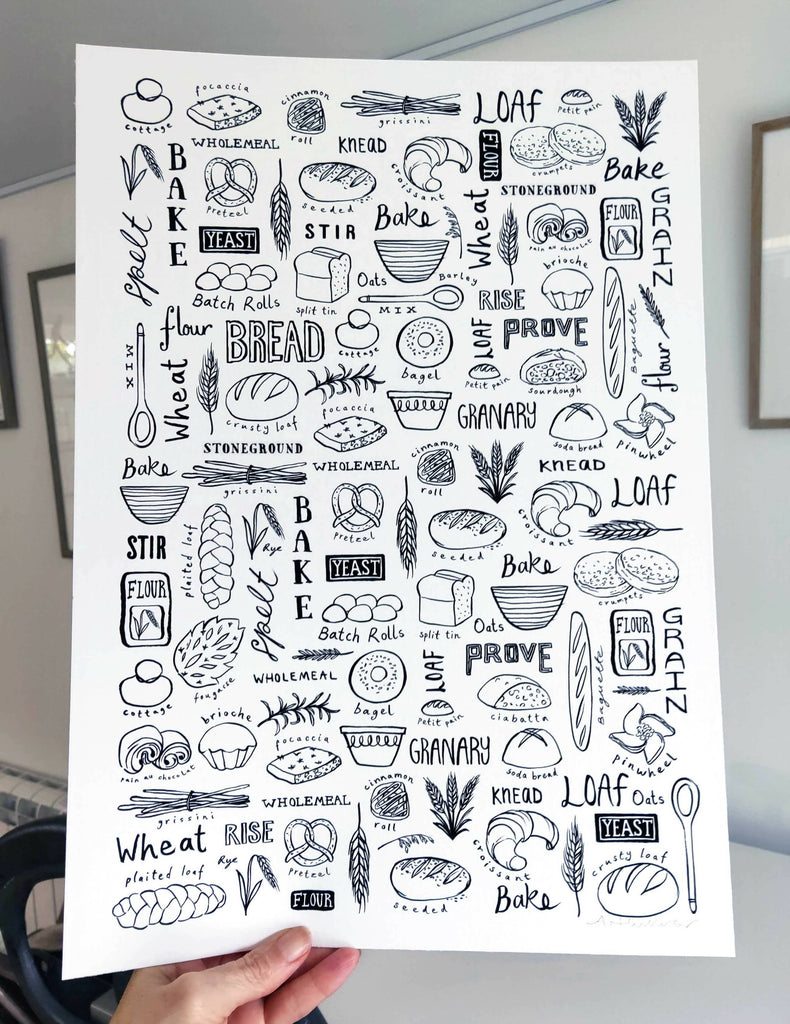 cottage
focaccia
cinnamon
roll
grissini
LOAF
petit pain
WHOLEMEAL
KNEAD
croissant
FLOUR
crumpets
Bake
BAKE
pretzel
seeded
STONEGROUND
spelt
YEAST
STIR
Bake
Wheat
pain au chocolat
FLOUR
GRAIN
Batch Rolls
split tin
Oats
Barley
MIX
RISE
brioche
MIX
flour
BREAD
cottage
bagel
LOAF
petit pain
PROVE
sourdough
Baguette
flour
Wheat
crusty loaf
focaccia
GRANARY
soda bread
pinwheel
STONEGROUND
Bake
grissini
WHOLEMEAL
cinnamon
roll
KNEAD
LOAF
STIR
plaited loaf
Rye
BAKE
pretzel
seeded
croissant
FLOUR
spelt
YEAST
Batch Rolls
split tin
Oats
Bake
crumpets
FLOUR
GRAIN
cottage
fougasse
WHOLEMEAL
bagel
LOAF
petit pain
PROVE
ciabatta
Baguette
pinwheel
pain au chocolat
brioche
focaccia
GRANARY
soda bread
grissini
WHOLEMEAL
cinnamon
roll
KNEAD
LOAF
Oats
Wheat
RISE
pretzel
croissant
YEAST
plaited loaf
Rye
FLOUR
seeded
Bake
crusty loaf